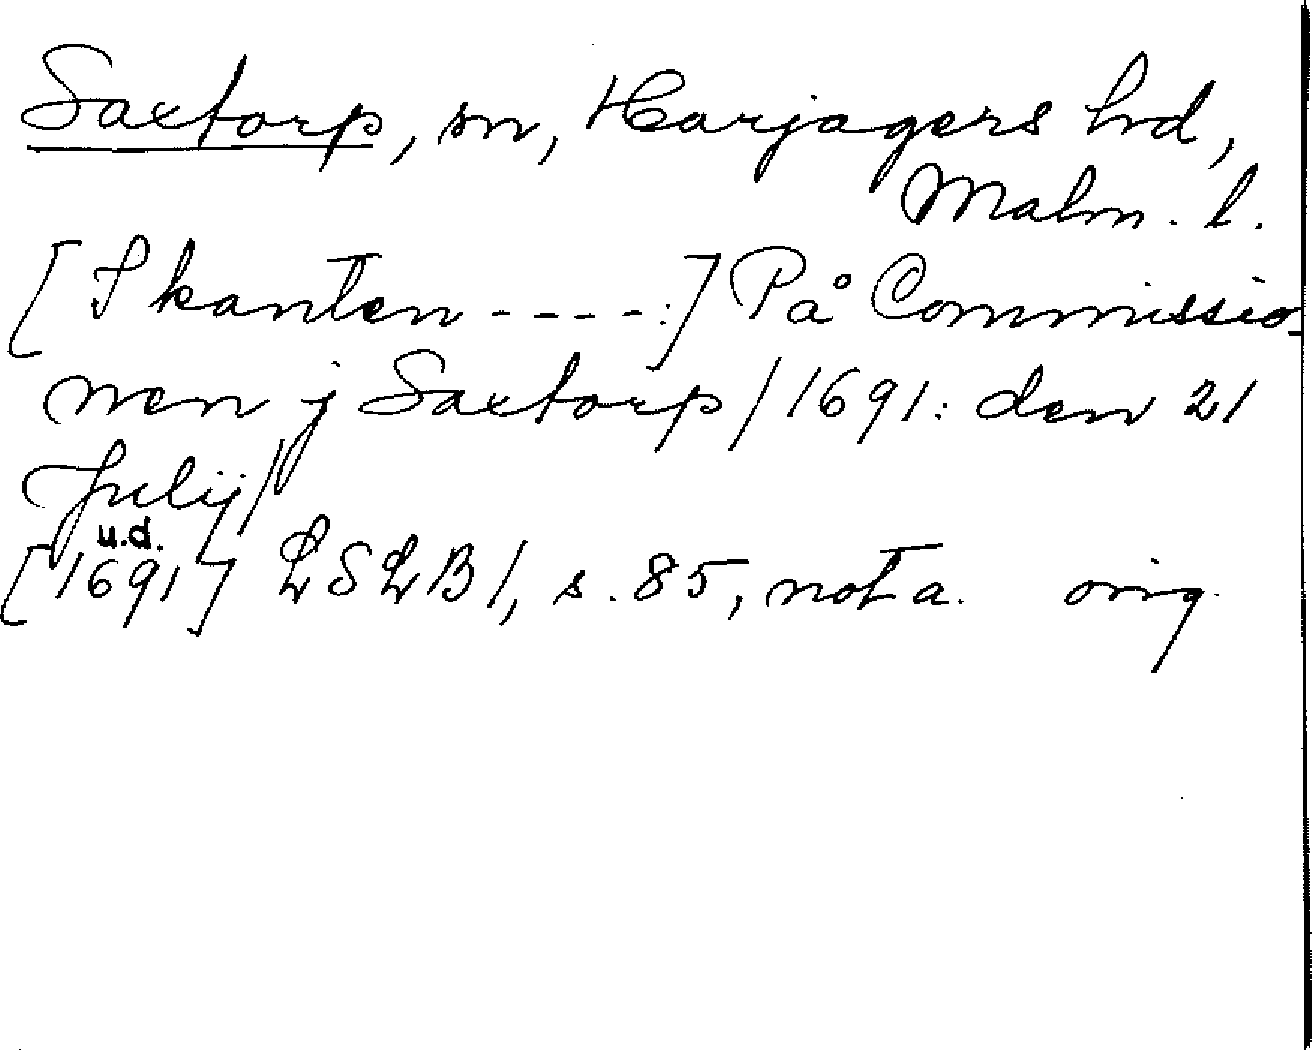 Saxtorp, sn, Harjagers hd,
Malm. l.
[I kanten ----:] På Commissio-
nen j Saxtorp/1691: den 21
Julij/
u.d.
[1691] LSLB1, s. 85, nota. orig.